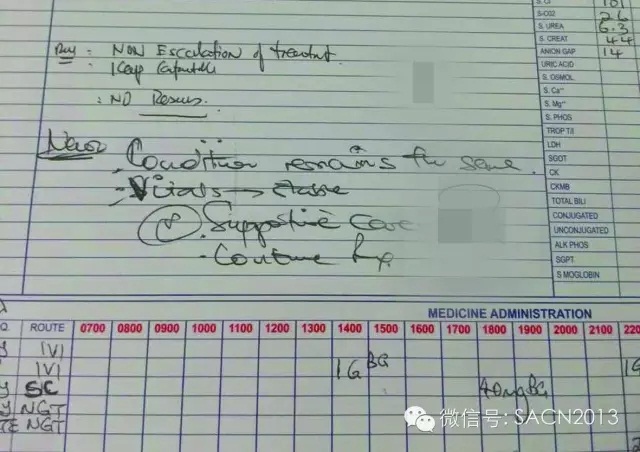 S-Cl 101
S-CO2 26
S. UREA 6.3
S. CREAT 44
ANION GAP 14
URIC ACID
S. OSMOL
S. Ca++
S. Mg++
S. PHOS
TROP T/I
LDH
SGOT
CK
CKMB
TOTAL BILI
CONJUGATED
UNCONJUGATED
ALK PHOS
SGPT
S MOGLOBIN
: NON Escalation of treatment.
: Keep
: NO Resus.
Neuro
Condition remains the same.
- Vitals →
Supportive Care
- Continue
MEDICINE ADMINISTRATION
Q ROUTE 0700 0800 0900 1000 1100 1200 1300 1400 1500 1600 1700 1800 1900 2000 2100 220
IVI
IVI 1G BG 1G
SC 40mg BG
NGT
NGT
微信号: SACN2013